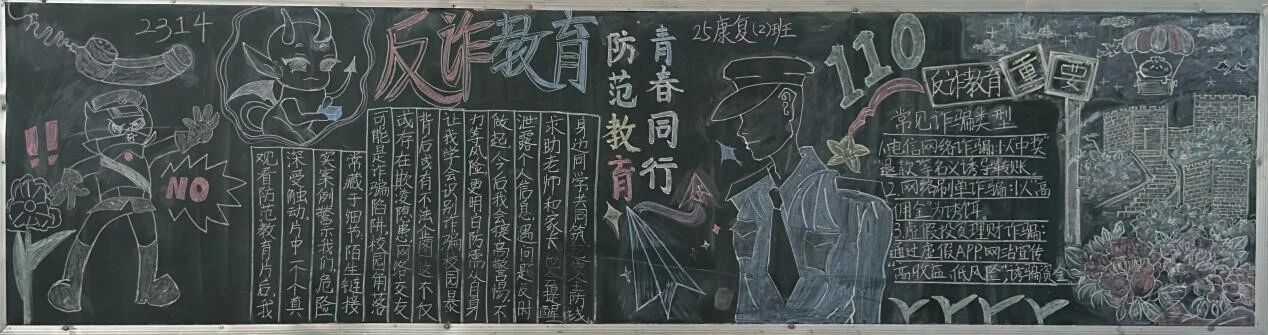 2314
反诈教育
防范教育
青春同行
25康复(2)班
110
反诈教育重要
!!
NO
观看防范教育片后,我
深受触动。片中一个个真
实案例警示我们,危险
常藏于细节,陌生链接
可能是诈骗陷阱,校园角落
或存在欺凌隐患,网络交友
背后或有不法企图,这不仅
让我学会识别诈骗、校园暴
力等风险,更明白防需从自身
做起。今后我会提高警惕,不
泄露个人信息,遇问题及时
求助老师和家长,也会提醒
身边同学共同筑牢安全防线
常见诈骗类型
1.电信网络诈骗:以"中奖"
"退款"等名义诱导转账。
2.网络刷单诈骗:以"高
佣金"为诱饵。
3.虚假投资理财诈骗:
通过虚假APP、网站宣传
"高收益、低风险",诈骗资金